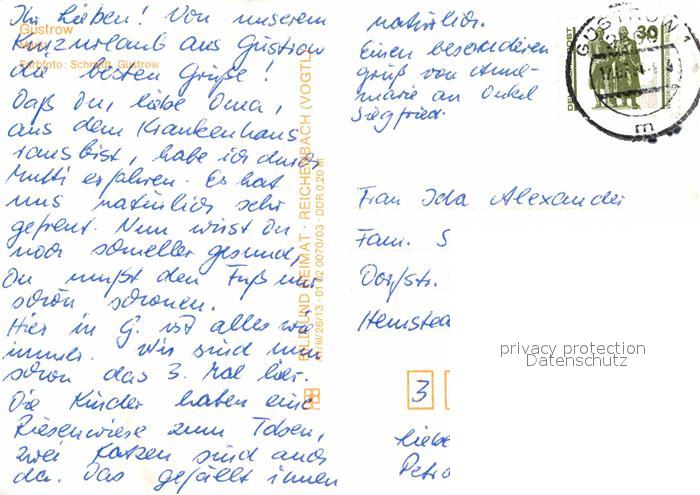 Ihr Lieben! Von unserem
Kurzurlaub aus Güstrow
die besten Grüße!
Daß Du, liebe Oma,
aus dem Krankenhaus
raus bist, habe ich durch
Mutti erfahren. Es hat
uns natürlich sehr
gefreut. Nun wirst Du
noch schneller gesund,
Du mußt den Fuß nur
schön schonen.
Hier in G. ist alles wie
immer. Wir sind nun
schon das 3. Mal hier.
Die Kinder haben eine
Riesenwiese zum Toben,
zwei Katzen sind auch
da. Das gefällt ihnen
natürlich.
Einen besonderen
Gruß von Anne-
marie an Onkel
Siegfried.
Güstrow
Farbfoto: Schmidt, Güstrow
BILD UND HEIMAT · REICHENBACH (VOGTL
III/26/13 · 01 02 0070/03 · DDR 0,20 M
30
GÜSTROW 1
Frau Ida Alexander
Fam. S
Dorfstr.
Hemstea
privacy protection
Datenschutz
3
liebe
Petro